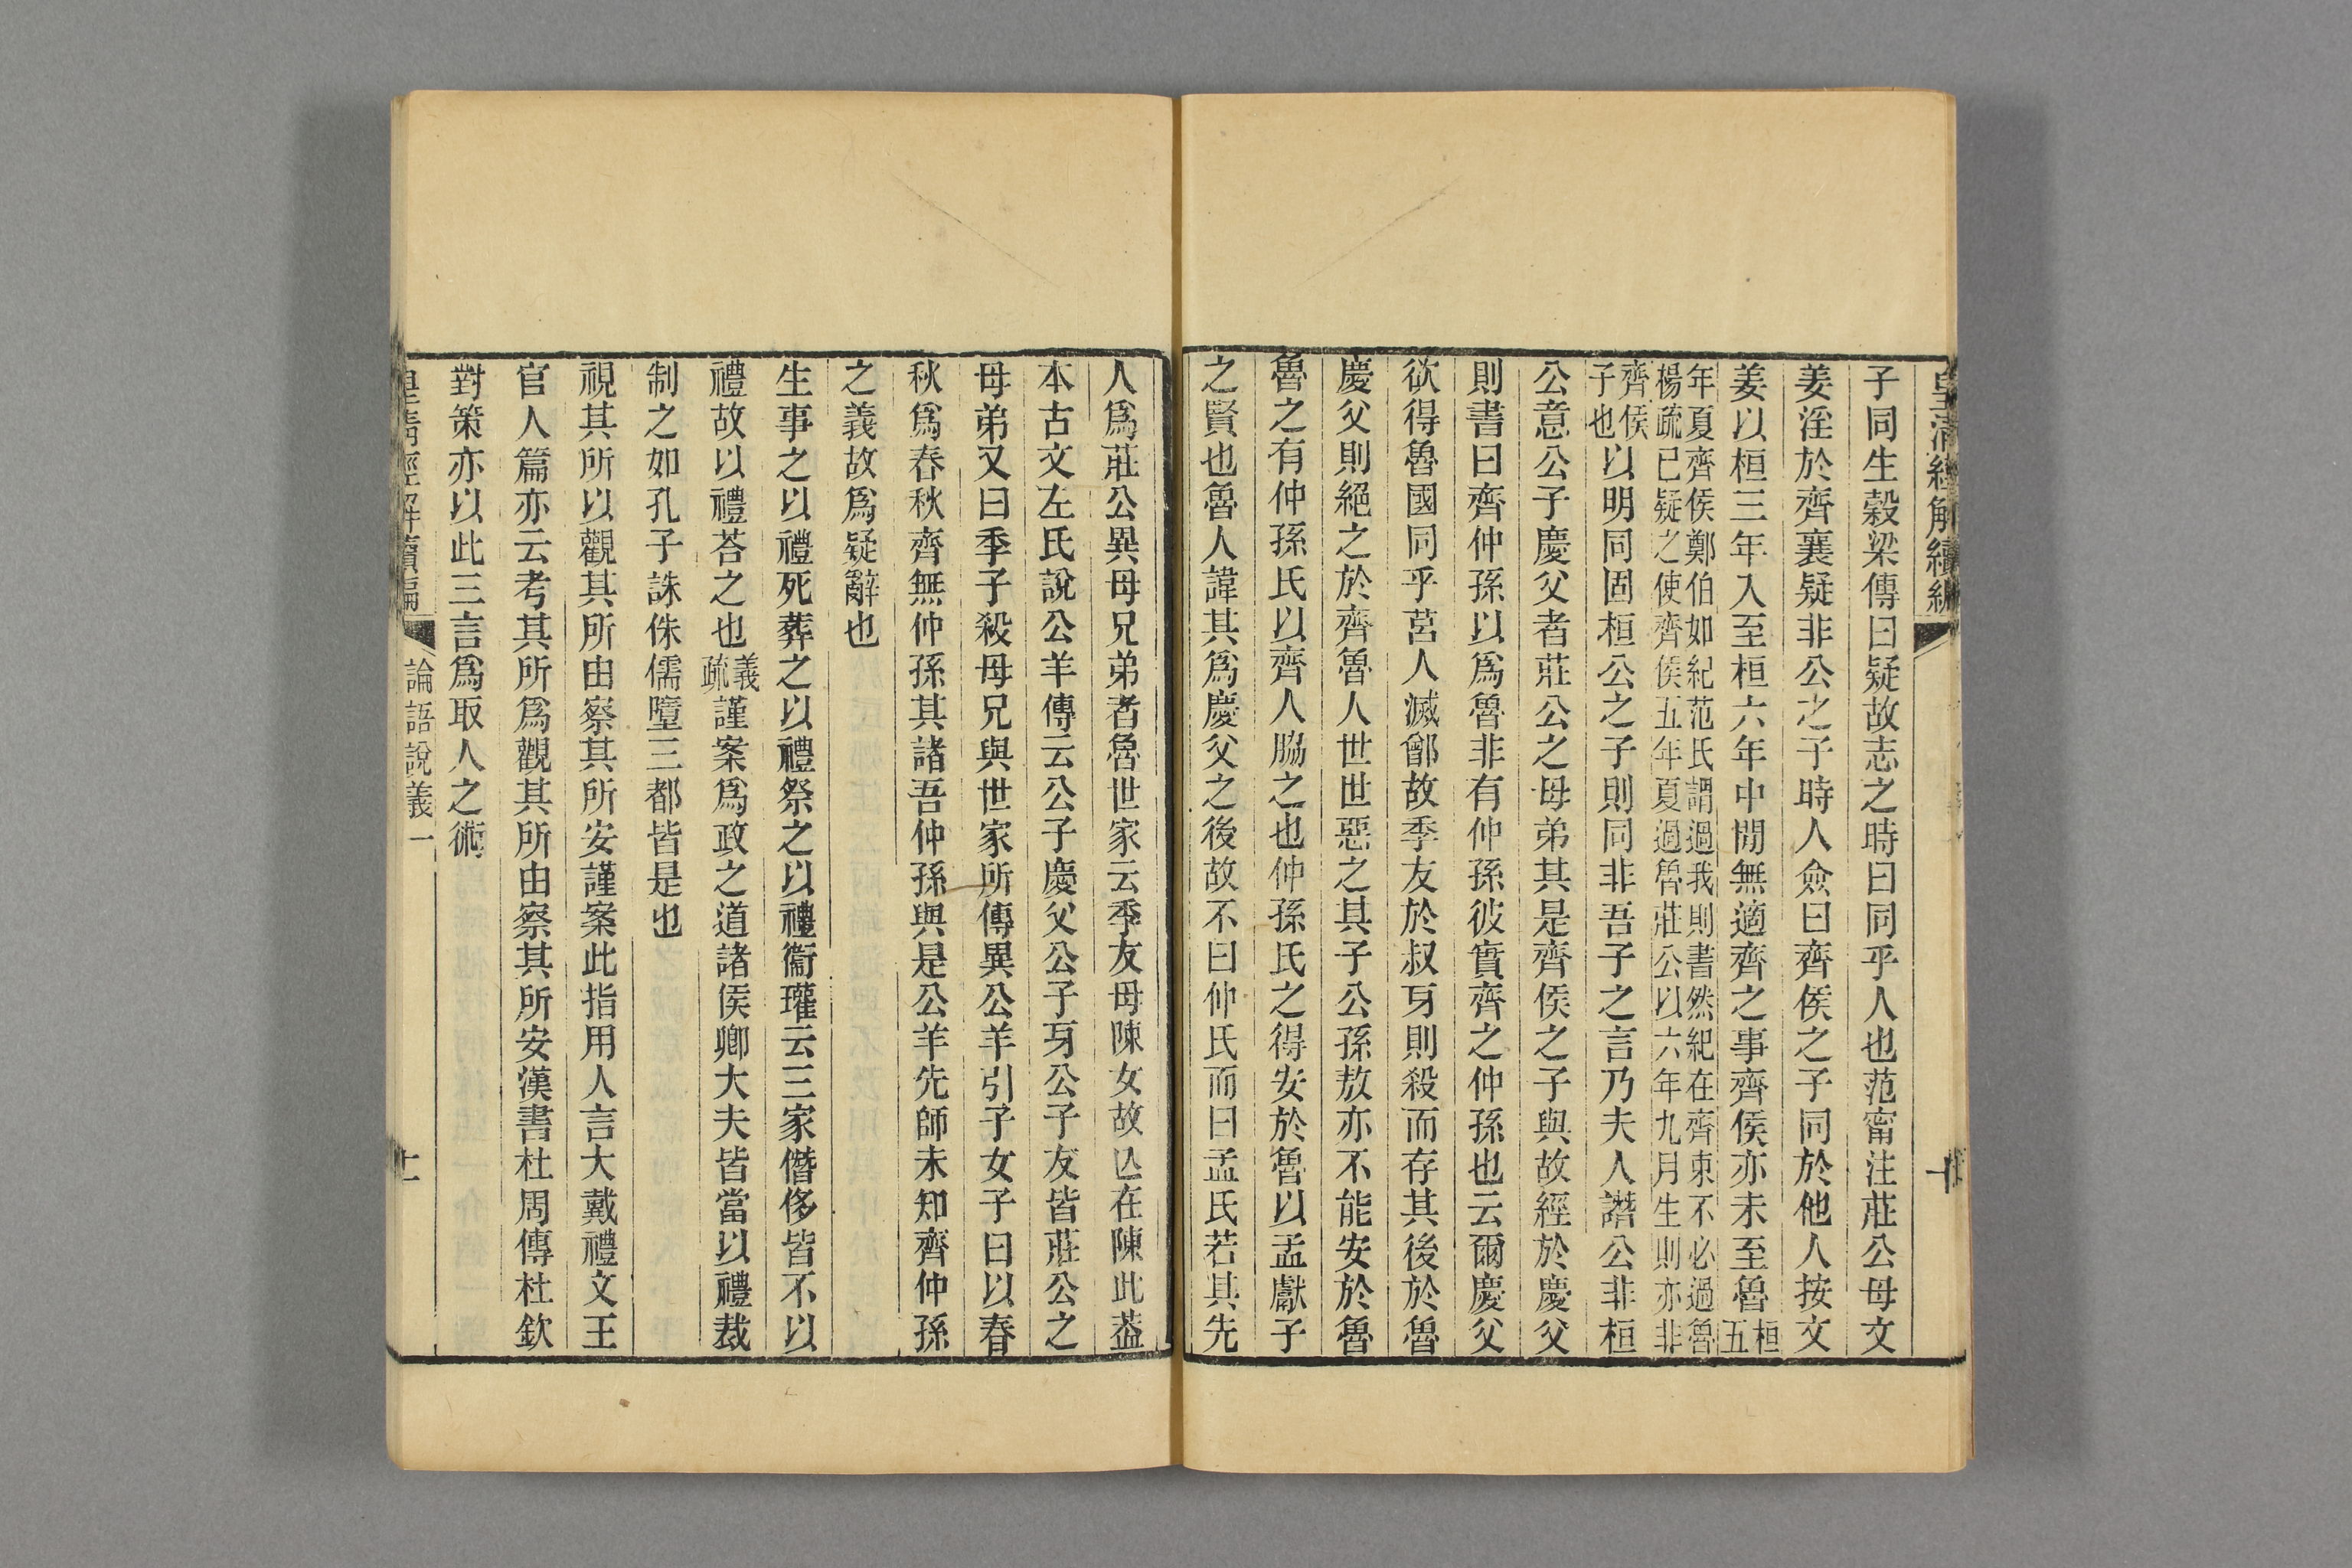 皇清經解續編
十
子同生榖梁傳曰疑故志之時曰同乎人也范甯注莊公母文
姜淫於齊襄疑非公之子時人僉曰齊侯之子同於他人按文
姜以桓三年入至桓六年中閒無適齊之事齊侯亦未至魯桓五
年夏齊侯鄭伯如紀范氏謂過我則書然紀在齊東不必過魯
楊疏已疑之使齊侯五年夏過魯莊公以六年九月生則亦非
齊侯子也以明同固桓公之子則同非吾子之言乃夫人譖公非桓
公意公子慶父者莊公之母弟其是齊侯之子與故經於慶父
則書曰齊仲孫以爲魯非有仲孫彼實齊之仲孫也云爾慶父
欲得魯國同乎莒人滅鄫故季友於叔牙則殺而存其後於魯
慶父則絕之於齊魯人世世惡之其子公孫敖亦不能安於魯
魯之有仲孫氏以齊人脇之也仲孫氏之得安於魯以孟獻子
之賢也魯人諱其爲慶父之後故不曰仲氏而曰孟氏若其先
人爲莊公異母兄弟者魯世家云季友母陳女故亾在陳此葢
本古文左氏說公羊傳云公子慶父公子牙公子友皆莊公之
母弟又曰季子殺母兄與世家所傳異公羊引子女子曰以春
秋爲春秋齊無仲孫其諸吾仲孫與是公羊先師未知齊仲孫
之義故爲疑辭也
生事之以禮死葬之以禮祭之以禮衞瓘云三家僭侈皆不以
禮故以禮荅之也義疏謹案爲政之道諸侯卿大夫皆當以禮裁
制之如孔子誅侏儒墮三都皆是也
視其所以觀其所由察其所安謹案此指用人言大戴禮文王
官人篇亦云考其所爲觀其所由察其所安漢書杜周傳杜欽
對策亦以此三言爲取人之術
皇清經解續編
論語說義一
十一